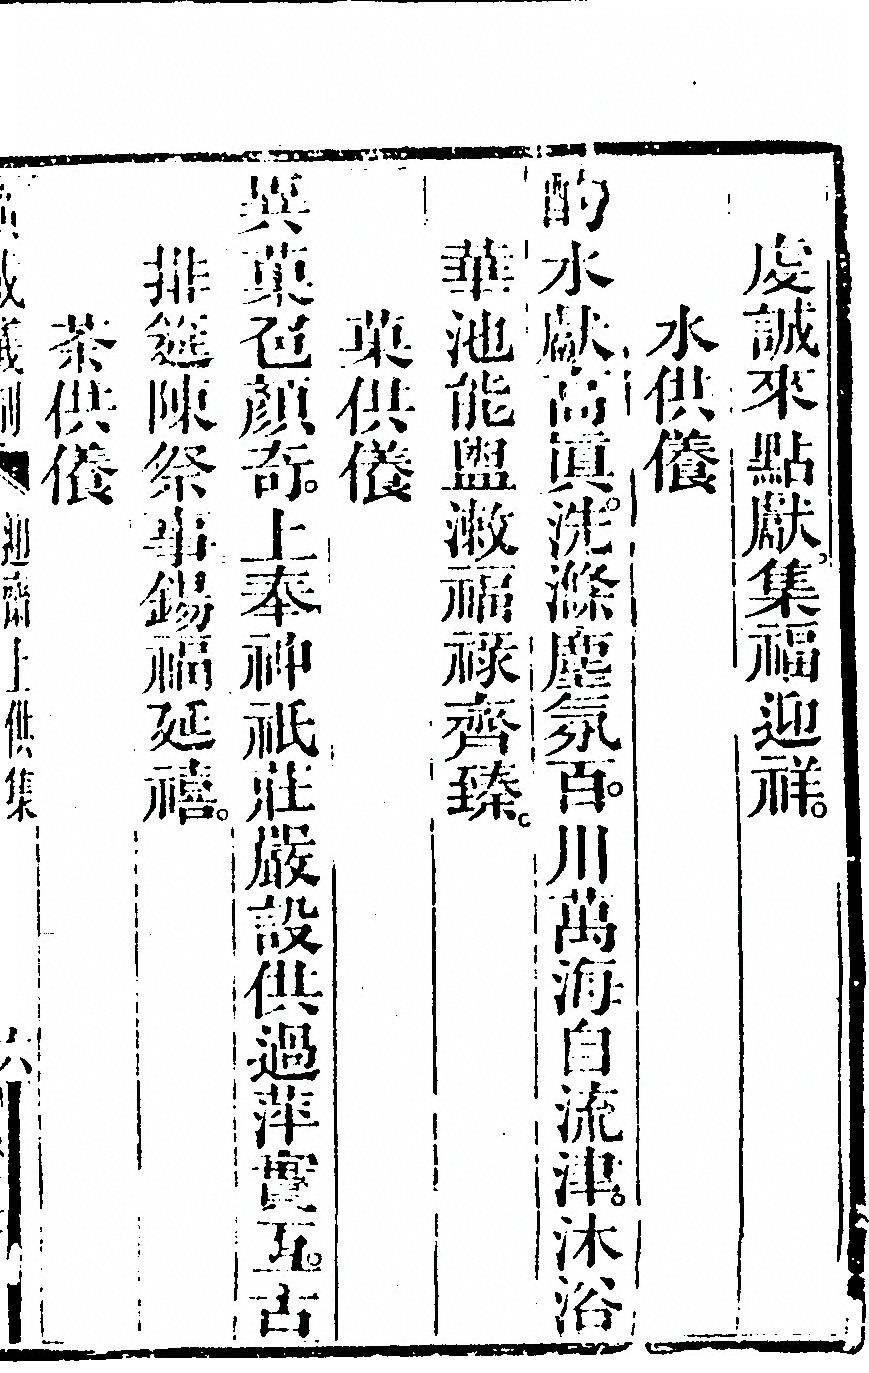 虔誠來點獻集福迎祥。
水供養
酌水獻高眞。洗滌塵氛百。川萬海自流津。沐浴
華池能盥漱福祿齊臻。
菓供養
異菓色顔奇。上奉神祇莊嚴設供過萍實亙。古
排筵陳祭事錫福延禧。
茶供養
廣成儀制 迎齋上供集 六